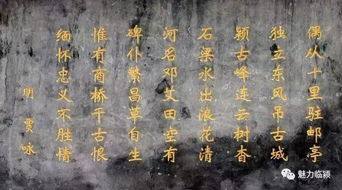 偶从十里驻邮亭
独立东风吊古城
颖古峰连云树杳
石梁水出浪花清
河名邓艾田空有
碑仆繁昌草自生
惟有商桥千古恨
缅怀忠义不胜情
明 贾咏
魅力临颍